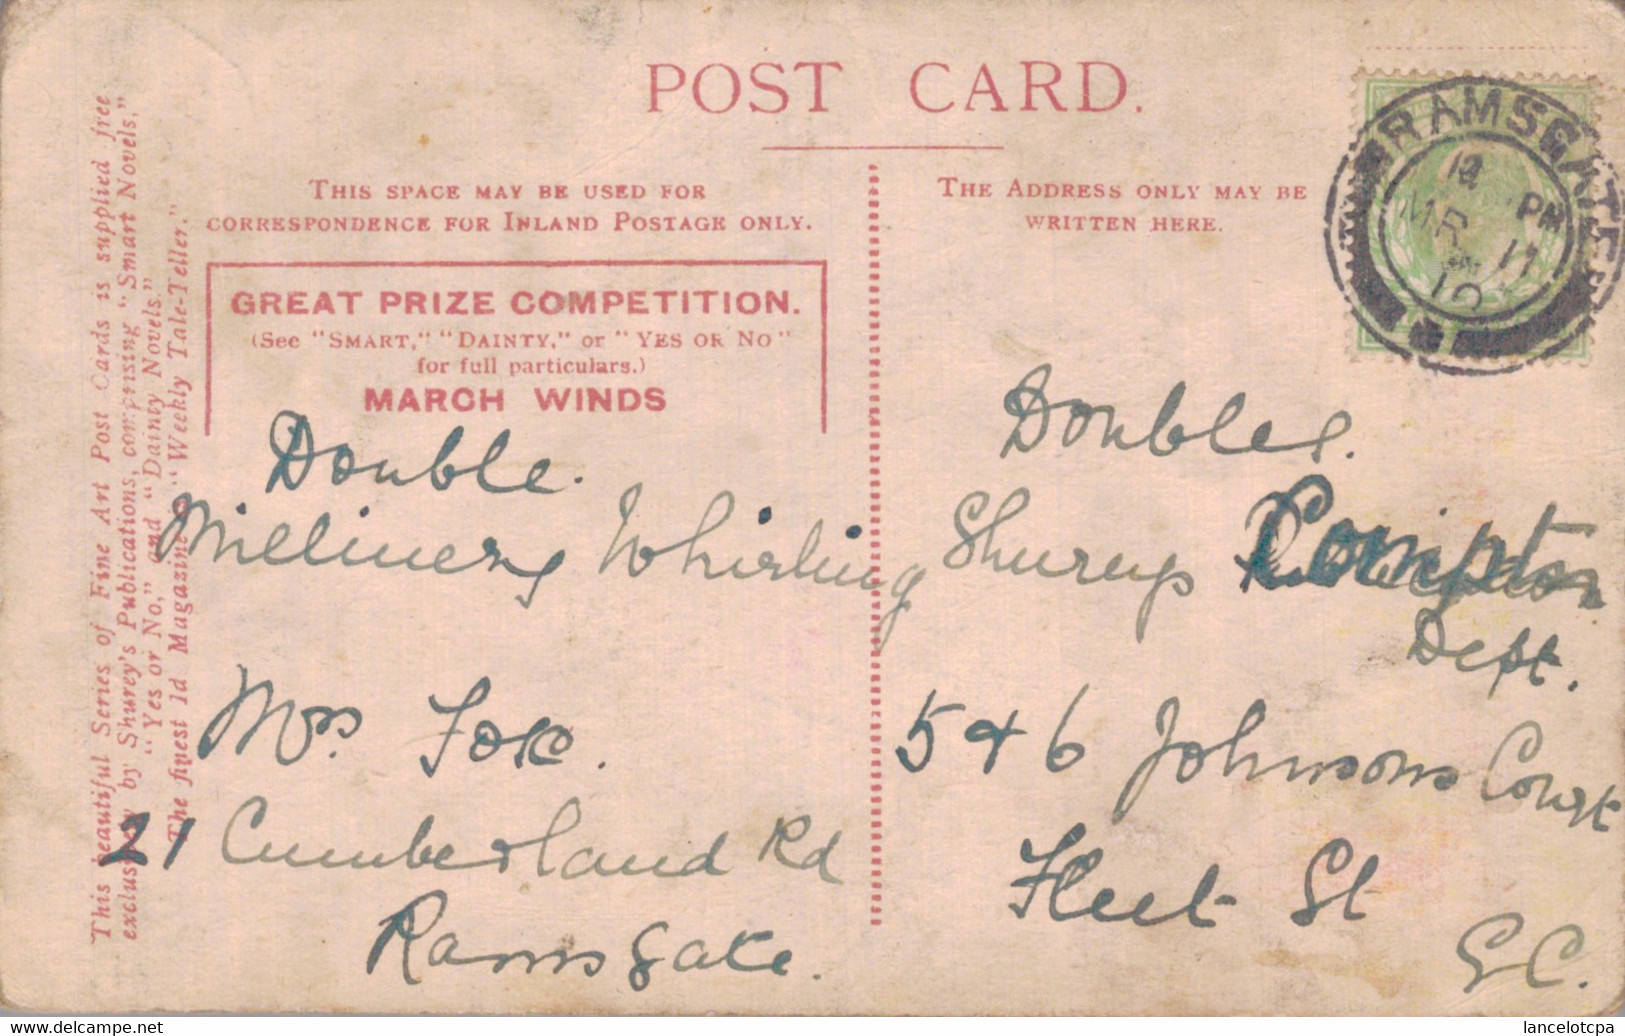 POST CARD.
THIS SPACE MAY BE USED FOR
CORRESPONDENCE FOR INLAND POSTAGE ONLY.
THE ADDRESS ONLY MAY BE
WRITTEN HERE.
RAMSGATE
PM
MR 11
10
GREAT PRIZE COMPETITION.
(See "SMART," "DAINTY," or "YES OR NO"
for full particulars.)
MARCH WINDS
This beautiful Series of Fine Art Post Cards is supplied free
exclusively by Shurey's Publications, comprising "Smart Novels,"
"Yes or No," and "Dainty Novels."
The finest 1d Magazine is "Weekly Tale-Teller."
Double.
Millinery Whirling
Mrs. Fox.
21 Cumberland Rd
Ramsgate.
Doubles.
Shureys
Dept.
5 + 6 Johnsons Court
Fleet St
E.C.
lancelotcpa